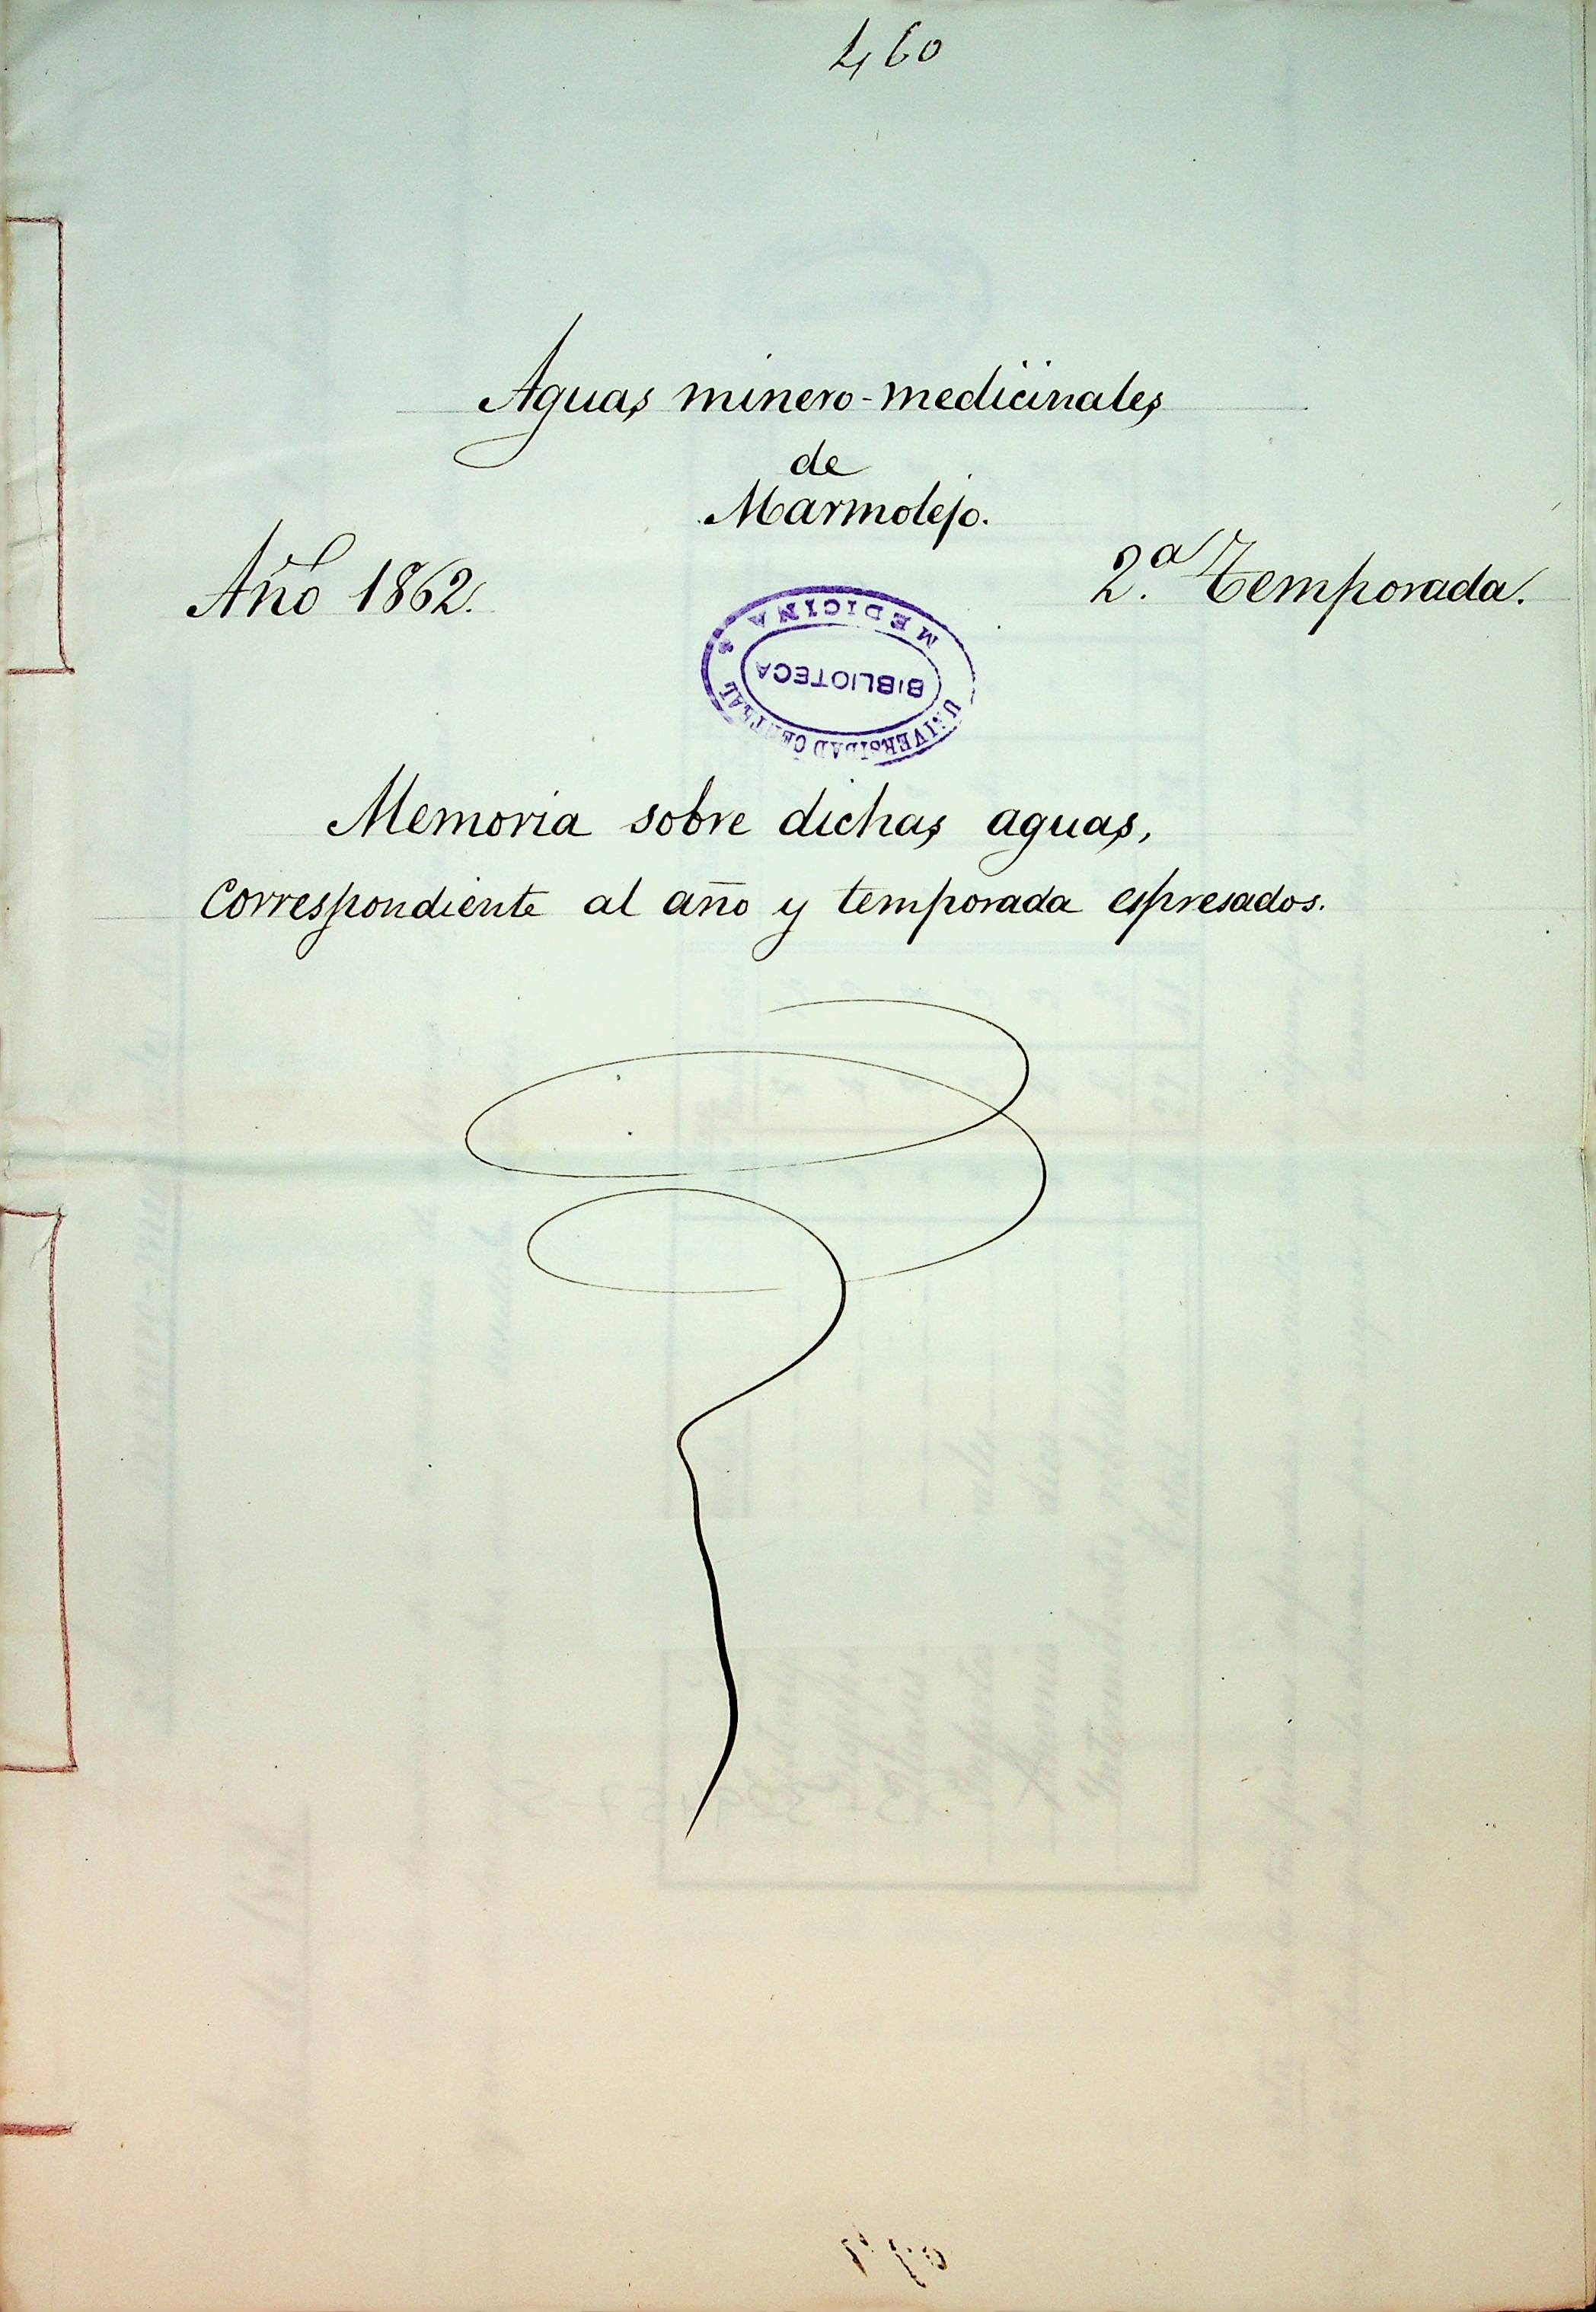 460
Aguas minero-medicinales
de
Marmolejo.
Año 1862.
2.ª Temporada.
UNIVERSIDAD CENTRAL
MEDICINA
BIBLIOTECA
Memoria sobre dichas aguas,
correspondiente al año y temporada espresados.